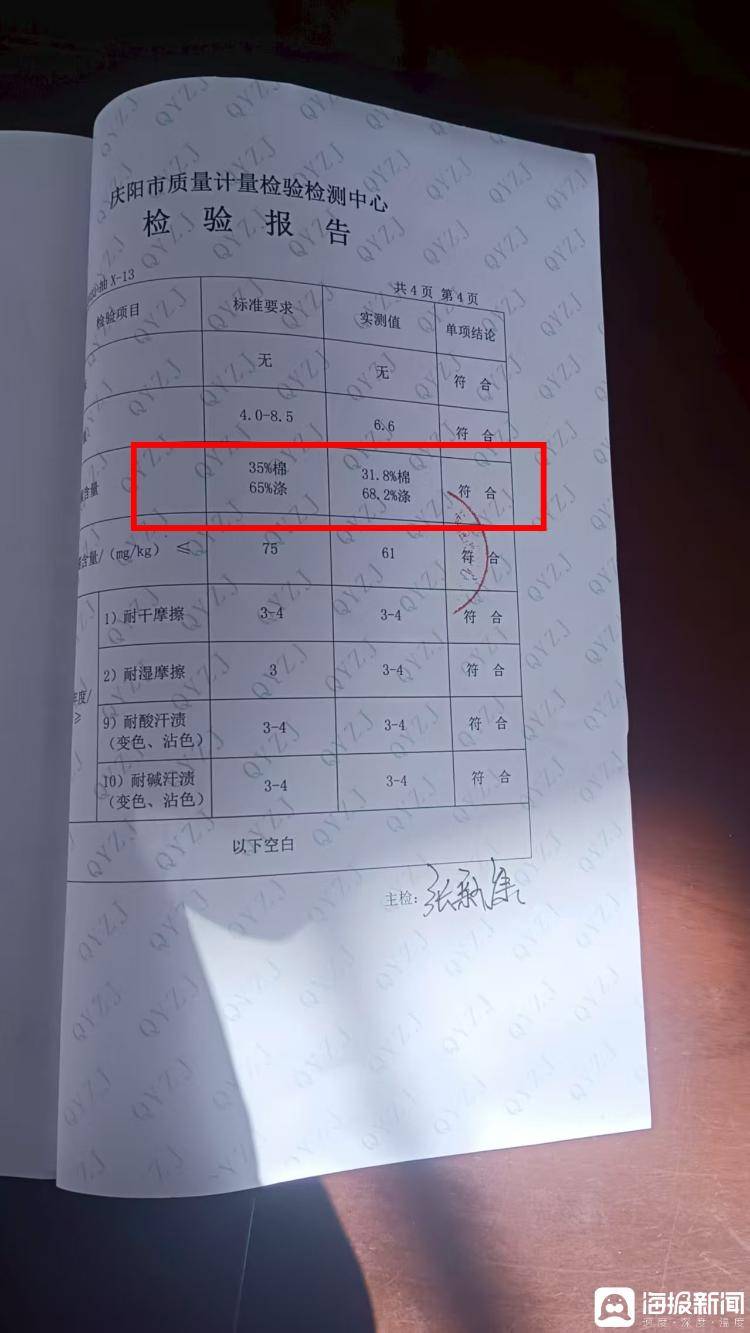 庆阳市质量计量检验检测中心
检 验 报 告
抽 X-13
共 4 页 第 4 页
检验项目 标准要求 实测值 单项结论
无 无 符 合
4.0-8.5 6.6 符 合
含量 35%棉 31.8%棉 符 合
65%涤 68.2%涤
含量/（mg/kg） ≤ 75 61 符 合
1）耐干摩擦 3-4 3-4 符 合
2）耐湿摩擦 3 3-4 符 合
度/
≥
9）耐酸汗渍 3-4 3-4 符 合
（变色、沾色）
10）耐碱汗渍 3-4 3-4 符 合
（变色、沾色）
以下空白
主检：
QYZJ
海报新闻
速度·深度·温度